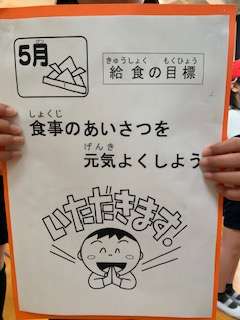 5月
給食の目標
きゅうしょく もくひょう
食事のあいさつを
しょくじ
元気よくしよう
げんき
いただきます!